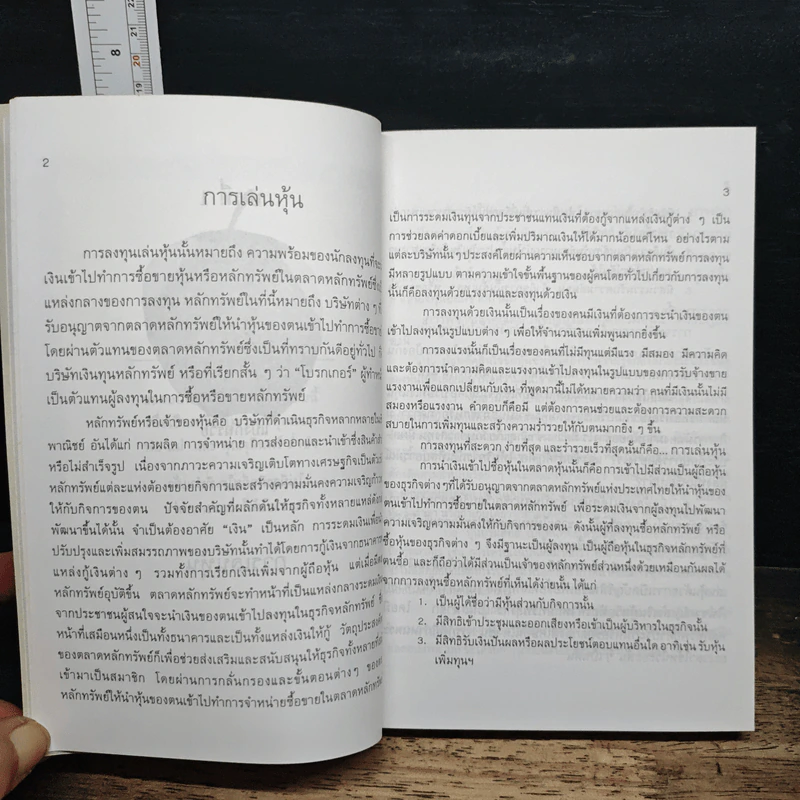 8
19 20 21 22
2
การเล่นหุ้น
การลงทุนเล่นหุ้นนั้นหมายถึง ความพร้อมของนักลงทุนที่จะ
เงินเข้าไปทำการซื้อขายหุ้นหรือหลักทรัพย์ในตลาดหลักทรัพย์ซึ่ง
แหล่งกลางของการลงทุน หลักทรัพย์ในที่นี้หมายถึง บริษัทต่าง ๆ
รับอนุญาตจากตลาดหลักทรัพย์ให้นำหุ้นของตนเข้าไปทำการซื้อ
โดยผ่านตัวแทนของตลาดหลักทรัพย์ซึ่งเป็นที่ทราบกันดีอยู่ทั่วไป
บริษัทเงินทุนหลักทรัพย์ หรือที่เรียกสั้น ๆ ว่า “โบรกเกอร์” ผู้ทำ
เป็นตัวแทนผู้ลงทุนในการซื้อหรือขายหลักทรัพย์
หลักทรัพย์หรือเจ้าของหุ้นคือ บริษัทที่ดำเนินธุรกิจหลากหลายใน
พาณิชย์ อันได้แก่ การผลิต การจำหน่าย การส่งออกและนำเข้าซึ่งสินค้า
หรือไม่สำเร็จรูป เนื่องจากภาวะความเจริญเติบโตทางเศรษฐกิจเป็นตัว
หลักทรัพย์แต่ละแห่งต้องขยายกิจการและสร้างความมั่นคงความเจริญ
ให้กับกิจการของตน ปัจจัยสำคัญที่ผลักดันให้ธุรกิจทั้งหลายแหล่
พัฒนาขึ้นได้นั้น จำเป็นต้องอาศัย “เงิน” เป็นหลัก การระดมเงินเพื่อ
ปรับปรุงและเพิ่มสมรรถภาพของบริษัทนั้นทำได้โดยการกู้เงินจากธนาคาร
แหล่งกู้เงินต่าง ๆ รวมทั้งการเรียกเงินเพิ่มจากผู้ถือหุ้น แต่เมื่อ
หลักทรัพย์อุบัติขึ้น ตลาดหลักทรัพย์จะทำหน้าที่เป็นแหล่งกลางระดม
จากประชาชนผู้สนใจจะนำเงินของตนเข้าไปลงทุนในธุรกิจหลักทรัพย์
หน้าที่เสมือนหนึ่งเป็นทั้งธนาคารและเป็นทั้งแหล่งเงินให้กู้ วัตถุประสงค์
ของตลาดหลักทรัพย์ก็เพื่อช่วยส่งเสริมและสนับสนุนให้ธุรกิจทั้งหลาย
เข้ามาเป็นสมาชิก โดยผ่านการกลั่นกรองและขั้นตอนต่างๆ ของ
หลักทรัพย์ให้นำหุ้นของตนเข้าไปทำการจำหน่ายซื้อขายในตลาดหลักทรัพย์
3
เป็นการระดมเงินทุนจากประชาชนแทนเงินที่ต้องกู้จากแหล่งเงินกู้ต่าง ๆ เป็น
การช่วยลดค่าดอกเบี้ยและเพิ่มปริมาณเงินให้ได้มากน้อยแค่ไหน อย่างไรตาม
แต่ละบริษัทนั้นๆ ประสงค์โดยผ่านความเห็นชอบจากตลาดหลักทรัพย์การลงทุน
มีหลายรูปแบบ ตามความเข้าใจขั้นพื้นฐานของผู้คนโดยทั่วไปเกี่ยวกับการลงทุน
นั้นก็คือลงทุนด้วยแรงงานและลงทุนด้วยเงิน
การลงทุนด้วยเงินนั้นเป็นเรื่องของคนมีเงินที่ต้องการจะนำเงินของตน
เข้าไปลงทุนในรูปแบบต่าง ๆ เพื่อให้จำนวนเงินเพิ่มพูนมากยิ่งขึ้น
การลงแรงนั้นก็เป็นเรื่องของคนที่ไม่มีทุนแต่มีแรง มีสมอง มีความคิด
และต้องการนำความคิดและแรงงานเข้าไปลงทุนในรูปแบบของการรับจ้างขาย
แรงงานเพื่อแลกเปลี่ยนกับเงิน ที่พูดมานี้ไม่ได้หมายความว่า คนที่มีเงินนั้นไม่มี
สมองหรือแรงงาน คำตอบก็คือมี แต่ต้องการคนช่วยและต้องการความสะดวก
สบายในการเพิ่มทุนและสร้างความร่ำรวยให้กับตนมากยิ่ง ๆ ขึ้น
การลงทุนที่สะดวก ง่ายที่สุด และร่ำรวยเร็วที่สุดนั้นก็คือ... การเล่นหุ้น
การนำเงินเข้าไปซื้อหุ้นในตลาดหุ้นนั้นก็คือการเข้าไปมีส่วนเป็นผู้ถือหุ้น
ธุรกิจต่างๆที่ได้รับอนุญาตจากตลาดหลักทรัพย์แห่งประเทศไทยให้นำหุ้นของ
ตนเข้าไปทำการซื้อขายในตลาดหลักทรัพย์ เพื่อระดมเงินจากผู้ลงทุนไปพัฒนา
ความเจริญความมั่นคงให้กับกิจการของตน ดังนั้นผู้ที่ลงทุนซื้อหลักทรัพย์ หรือ
ซื้อหุ้นของธุรกิจต่าง ๆ จึงมีฐานะเป็นผู้ลงทุน เป็นผู้ถือหุ้นในธุรกิจหลักทรัพย์ที่
ตนซื้อ และก็ถือว่าได้มีส่วนเป็นเจ้าของหลักทรัพย์ส่วนหนึ่งด้วยเหมือนกันผลได้
จากการลงทุนซื้อหลักทรัพย์ที่เห็นได้ง่ายนั้น ได้แก่
1. เป็นผู้ได้ชื่อว่ามีหุ้นส่วนกับกิจการนั้น
2. มีสิทธิเข้าประชุมและออกเสียงหรือเข้าเป็นผู้บริหารในธุรกิจนั้น
3. มีสิทธิรับเงินปันผลหรือผลประโยชน์ตอบแทนอื่นใด อาทิเช่น รับหุ้น
เพิ่มทุนฯ